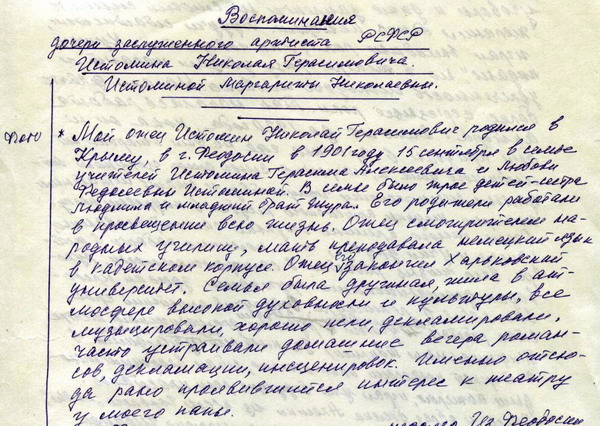 Воспоминания
дочери заслуженного артиста РСФСР
Истомина Николая Герасимовича.
Истоминой Маргариты Николаевны.
* Мой отец Истомин Николай Герасимович родился в
Крыму, в г. Феодосии в 1901 году 15 сентября в семье
учителей Истомина Герасима Алексеевича и Любови
Федосеевны Истоминой. В семье было трое детей - сестра
Людмила и младший брат Жура. Его родители работали
в просвещении всю жизнь. Отец смотрителем на-
родных училищ, мать преподавала немецкий язык
в кадетском корпусе. Отец его закончил Харьковский
университет. Семья была дружная, жила в ат-
мосфере высокой духовности и культуры, все
музицировали, хорошо пели, декламировали,
часто устраивали домашние вечера роман-
сов, декламации, инсценировок. Именно отсю-
да рано проявившийся интерес к театру
у моего папы.
из Феодосии